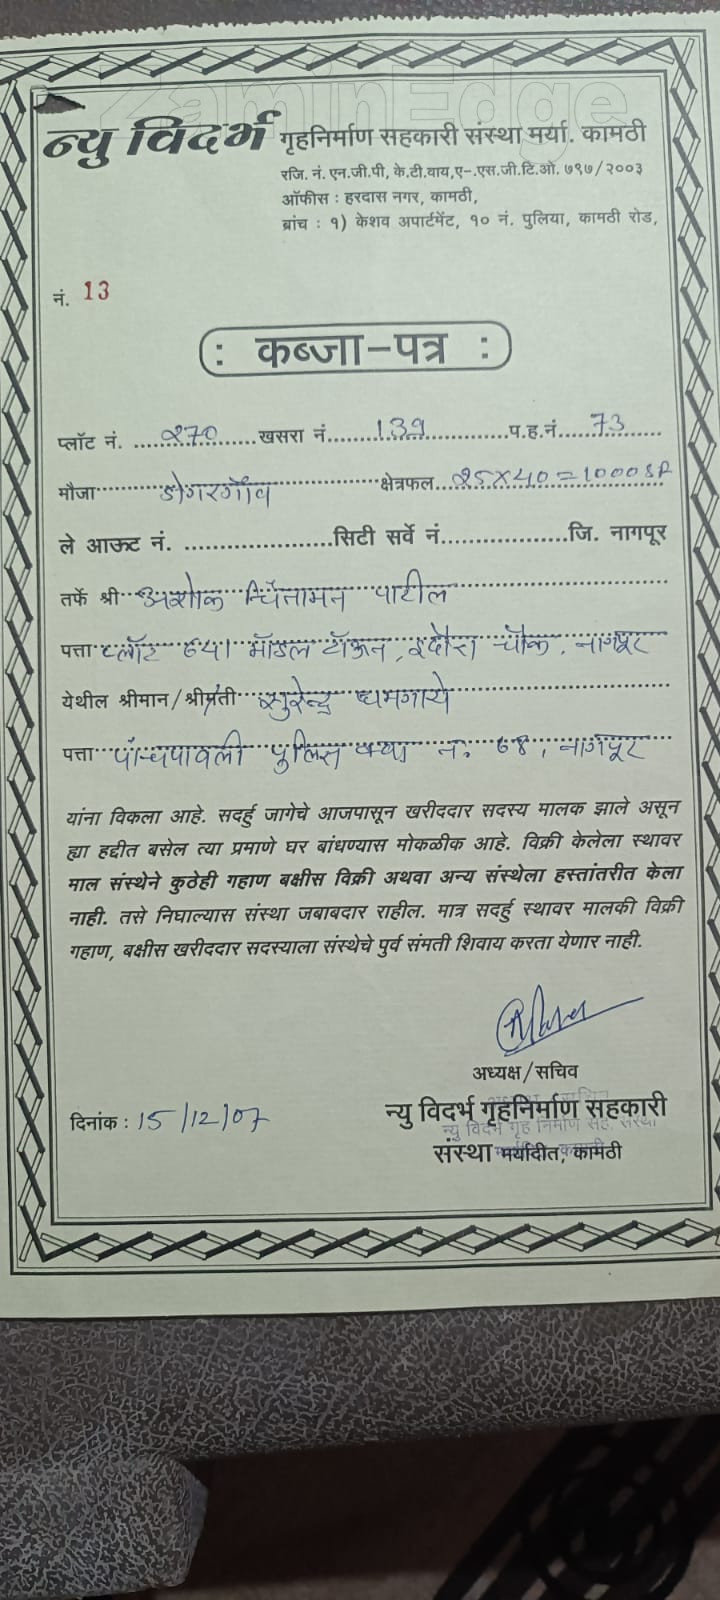 ZaminEdge
न्यु विदर्भ गृहनिर्माण सहकारी संस्था मर्या. कामठी
रजि. नं. एन.जी.पी, के.टी.वाय,ए-.एस.जी.टि.ओ. ७९७/२००३
ऑफीस : हरदास नगर, कामठी,
ब्रांच : १) केशव अपार्टमेंट, १० नं. पुलिया, कामठी रोड,
नं. 13
: कब्जा-पत्र :
प्लॉट नं. 270 खसरा नं. 139 प.ह.नं. 73
मौजा डोंगरगाँव क्षेत्रफल 25X40=1000
ले आऊट नं. सिटी सर्वे नं. जि. नागपूर
तर्फे श्री अशोक चिंतामन पाटील
पत्ता प्लॉट 641 मॉडल टॉऊन, इंदोरा चौक, नागपूर
येथील श्रीमान/श्रीमती सुरेन्द्र घमगाये
पत्ता पांचपावली पुलिस क्वा. न. 68, नागपूर
यांना विकला आहे. सदर्हु जागेचे आजपासून खरीददार सदस्य मालक झाले असून
ह्या हद्दीत बसेल त्या प्रमाणे घर बांधण्यास मोकळीक आहे. विक्री केलेला स्थावर
माल संस्थेने कुठेही गहाण बक्षीस विक्री अथवा अन्य संस्थेला हस्तांतरीत केला
नाही. तसे निघाल्यास संस्था जबाबदार राहील. मात्र सदर्हु स्थावर मालकी विक्री
गहाण, बक्षीस खरीददार सदस्याला संस्थेचे पुर्व संमती शिवाय करता येणार नाही.
अध्यक्ष/सचिव
दिनांक : 15/12/07
न्यु विदर्भ गृहनिर्माण सहकारी
न्यु विदर्भ गृह निर्माण सह. संस्था
संस्था मर्यादीत, कामठी